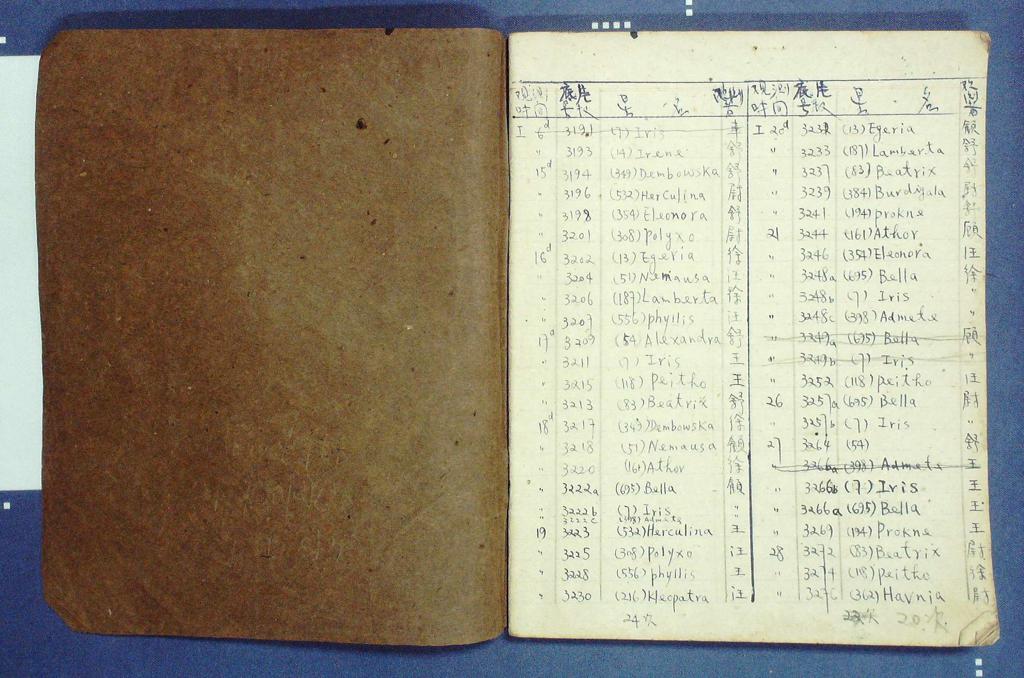 观测时间 底片号数 星名
I 6d 3191 (7) Iris
" 3193 (14) Irene 舒
15d 3194 (349) Dembowska 舒
" 3196 (532) Herculina 尉
" 3198 (354) Eleonora 舒
" 3201 (308) Polyxo 尉
16d 3202 (13) Egeria 徐
" 3204 (51) Nemausa 汪
" 3206 (187) Lamberta 徐
" 3207 (556) phyllis 汪
17d 3209 (54) Alexandra 舒
" 3211 (7) Iris 王
" 3215 (118) Peitho 王
" 3213 (83) Beatrix 舒
18d 3217 (349) Dembowska 徐
" 3218 (51) Nemausa 顾
" 3220 (161) Athor 徐
" 3222a (695) Bella 顾
" 3222b (7) Iris "
3222c (398) Admete
19 3223 (532) Herculina 王
" 3225 (308) Polyxo 汪
" 3228 (556) phyllis 王
" 3230 (216) Kleopatra 汪
24次
观测时间 底片号数 星名
I 20d (13) Egeria 顾
" 3233 (187) Lamberta 舒
" 3237 (83) Beatrix 舒
" 3239 (384) Burdigala 尉
" 3241 (194) prokne 舒
21 3244 (161) Athor 顾
" 3246 (354) Eleonora 汪
" 3248a (695) Bella 徐
" 3248b (7) Iris "
" 3248c (398) Admete
" 3249a (695) Bella 顾
" 3249b (7) Iris "
" 3252 (118) peitho 汪
26 3257a (695) Bella 尉
" 3257b (7) Iris "
27 3264 (54) 舒
" 3266a (398) Admete 王
" 3266b (7) Iris 王
3266a (695) Bella 王
" 3269 (194) Prokne 王
28 3272 (83) Beatrix 尉
" 3274 (118) Peitho 徐
" 3276 (362) Havnia 尉
20次